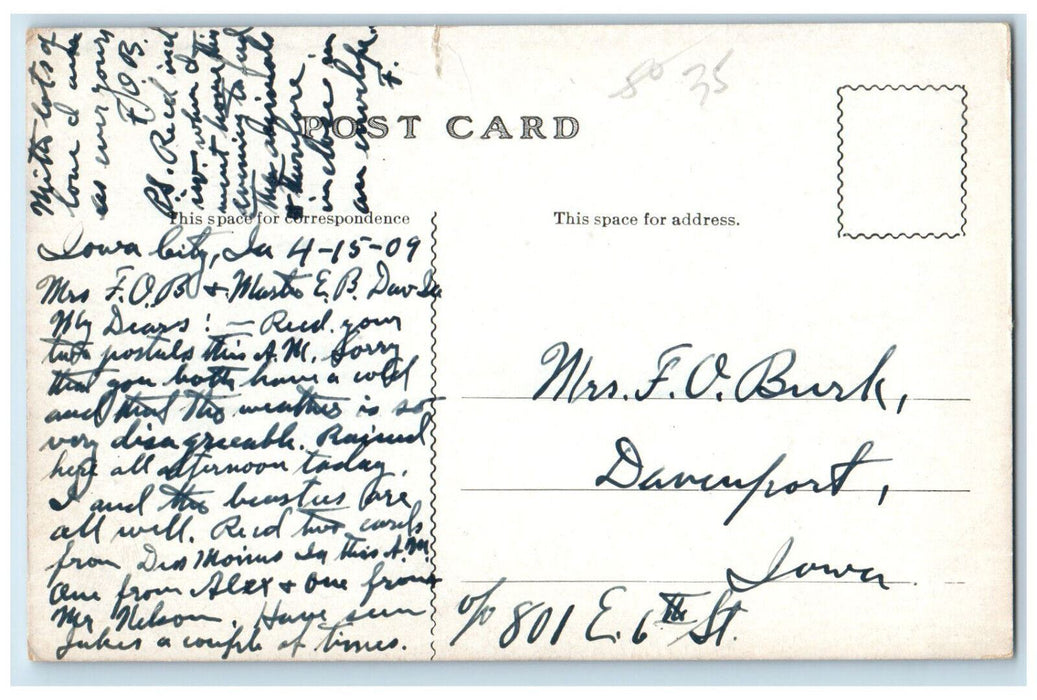 80 35
POST CARD
This space for correspondence
This space for address.
Iowa City, Ia 4-15-09
Mrs F.O.B & Master E.B. Dav Ia
My Dears! — Recd. your
two postals this A.M. Sorry
that you both have a cold
and that the weather is so
very disagreeable. Rained
here all afternoon today.
I and the beasties are
all well. Recd two cards
from Des Moines Ia this A.M.
One from Alex & one from
Mr Nelson. Have seen
Jukes a couple of times.
With lots of
love I am
as ever yours
F.O.B.
P.S. Recd
when I
went home this
evening to find
the
& therefore
enclose in
an envelope.
F.
Mrs. F. O. Burk,
Davenport,
Iowa
c/o 801 E. 6th St.